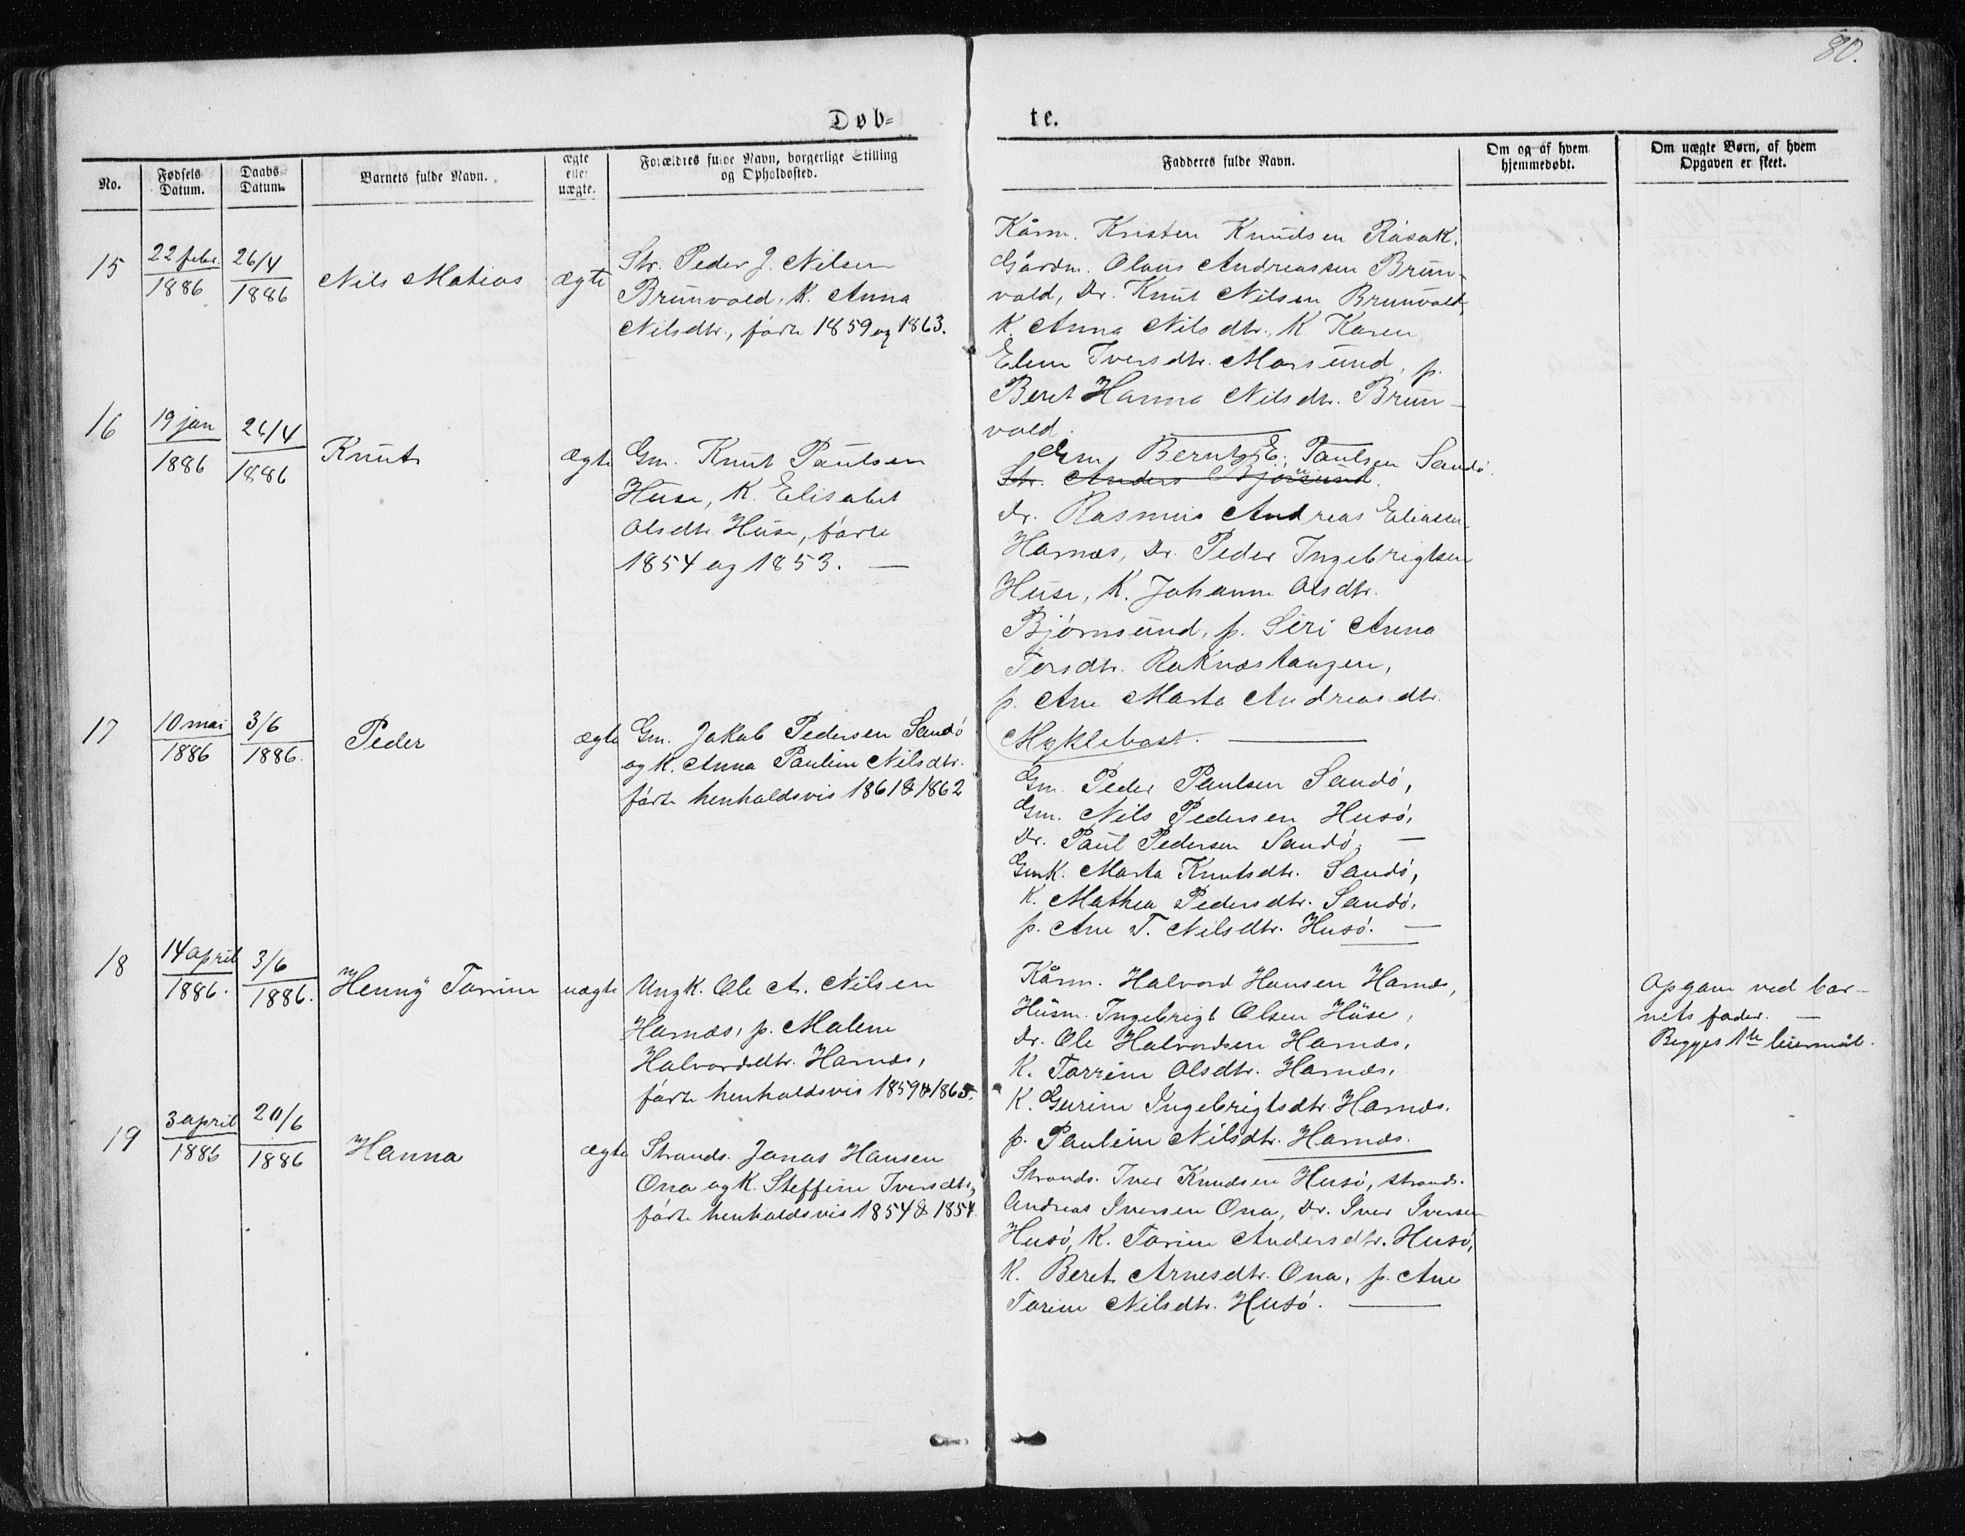 80.
Døb=
te.
No.
Fødsels Datum.
Daabs- Datum.
Barnets fulde Navn.
ægte eller uægte.
Forældres fulde Navn, borgerlige Stilling og Opholdssted.
Fadderes fulde Navn.
Om og af hvem hjemmedøbt.
Om uægte Børn, af hvem Opgaven er skeet.
15
22 febr. 1886
26/4 1886
Nils Matias
ægte
Str. Peder J. Nilsen
Brunvold, K. Anna
Nilsdtr., fødte 1859 og 1863.
Kårm. Kristen Knudsen Råsok,
Gårdm. Olaus Andreassen Brun-
vold, Dr. Knut Nilsen Brunvold,
K. Anna Nilsdtr., K. Karen
Elene Iversdtr. Morsund, p.
Beret Hanna Nilsdtr. Brun-
vold.
16
19 jan 1886
26/4 1886
Knut
ægte
Gm. Knut Paulsen
Huse, K. Elisabet
Olsdtr. Huse, fødte
1854 og 1853. —
Gm. Bernt E. Paulsen Sandø.
Str. Anders Bjørnsund.
Dr. Rasmus Andreas Eliassen
Harnæs, Dr. Peder Ingebrigtsen
Huse, K. Johanne Olsdtr.
Bjørnsund, p. Siri Anna
Torsdtr. Raknestangen,
p. Ane Marta Andreasdtr.
Myklebost. —
17
10 mai 1886
3/6 1886.
Peder
ægte
Gm. Jakob Pedersen Sandø
og K. Anna Pauline Nilsdtr.
fødte henholdsvis 1861 & 1862
Gm. Peder Paulsen Sandø,
Gm. Nils Pedersen Husø,
Dr. Paul Pedersen Sandø. —
GmK. Marta Knutsdtr. Sandø,
K. Mathea Pedersdtr. Sandø,
p. Ane T. Nilsdtr. Husø. —
18
14 april 1886.
3/6 1886.
Henny Torine
uægte
Ungk. Ole A. Nilsen
Harnæs, p. Malene
Halvorsdtr. Harnæs,
fødte henholdsvis 1859 & 1865.
Kårm. Halvord Hansen Harnæs,
Husm. Ingebrigt Olsen Huse,
Dr. Ole Halvordsen Harnæs,
K. Torrine Olsdtr. Harnæs,
K. Gurine Ingebrigtsdtr. Harnæs.
p. Pauline Nilsdtr. Harnæs.
Opgave ved bar-
nets fader. —
Begges 1ste leiermål.
19
3 april 1886
20/6 1886
Hanna
ægte
Strands. Jonas Hansen
Ona og K. Steffine Iversdtr,
fødte henholdsvis 1854 & 1854.
Strands. Iver Knudsen Husø, strands.
Andreas Iversen Ona, Dr. Iver Iversen
Husø, K. Torine Andersdtr. Husø,
K. Beret Arnesdtr. Ona, p. Ane
Torine Nilsdtr. Husø. —